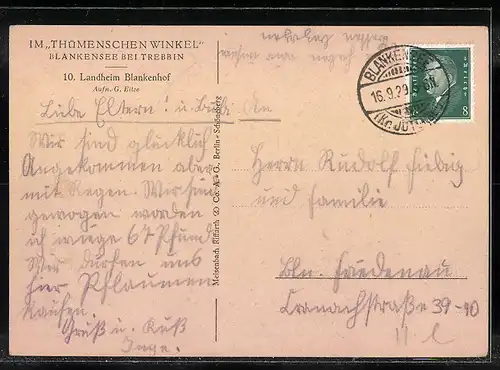 IM „THÜMENSCHEN WINKEL"
BLANKENSEE BEI TREBBIN
10. Landheim Blankenhof
Aufn. G. Eitze
Liebe Eltern! u. Bubi
Wir sind glücklich
Angekommen aber
mit Regen. Wir sind
gewogen worden
ich wiege 67 Pfund.
Wir dürfen uns
hier Pflaumen
kaufen.
Gruß u. Kuß
Inge.
Meisenbach Riffarth & Co. A.-G., Berlin-Schöneberg
BLANKENSEE
16.9.29
(Kr. JÜT
8
An
Herrn Rudolf Fiebig
und Familie
Bln. Friedenau
Cranachstraße 39-40